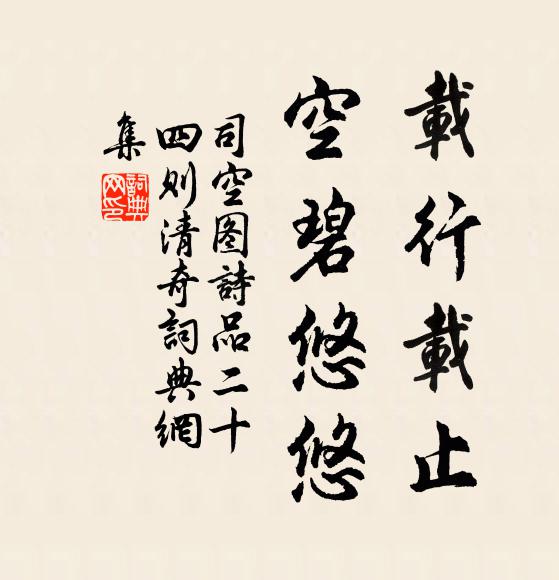 載行載止
空碧悠悠
司空图詩品二十
四则清奇詞典網
集
詞典
网印